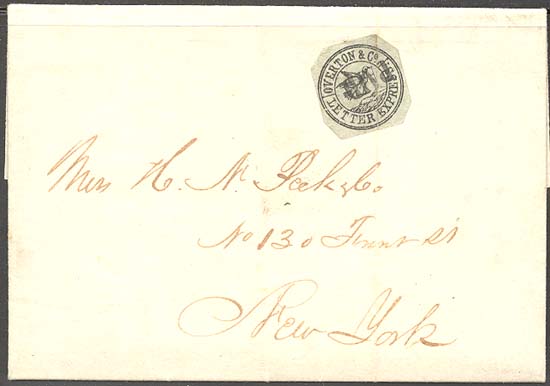 OVERTON & Co.
LETTER EXPRESS
Mess H. N. Peek & Co
No 130 Front St
New York